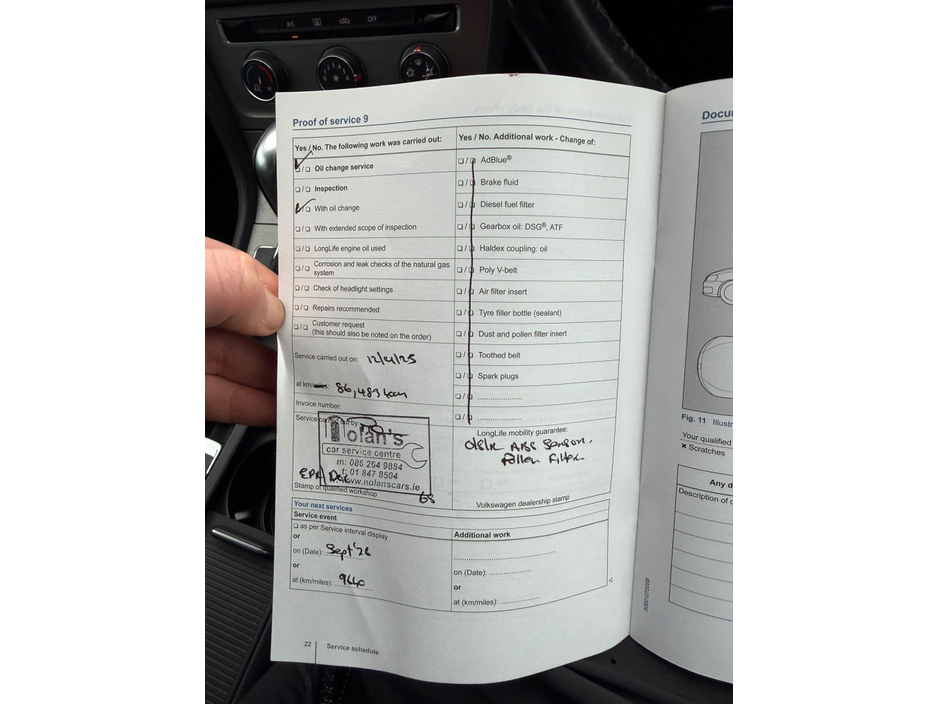 A/C OFF
Proof of service 9
Yes / No. The following work was carried out:
❑/❑ Oil change service
❑/❑ Inspection
❑/❑ With oil change
❑/❑ With extended scope of inspection
❑/❑ LongLife engine oil used
❑/❑ Corrosion and leak checks of the natural gas
system
❑/❑ Check of headlight settings
❑/❑ Repairs recommended
❑/❑ Customer request
(this should also be noted on the order)
Service carried out on: 12/4/25
at km/miles: 86,483 km
Invoice number:
Service carried out by
Nolan's
car service centre
m: 086 264 9884
t: 01 847 8504
www.nolanscars.ie
Stamp of qualified workshop
Yes / No. Additional work - Change of:
❑/❑ AdBlue®
❑/❑ Brake fluid
❑/❑ Diesel fuel filter
❑/❑ Gearbox oil: DSG®, ATF
❑/❑ Haldex coupling: oil
❑/❑ Poly V-belt
❑/❑ Air filter insert
❑/❑ Tyre filler bottle (sealant)
❑/❑ Dust and pollen filter insert
❑/❑ Toothed belt
❑/❑ Spark plugs
❑/❑ ......................
❑/❑ ......................
LongLife mobility guarantee:
Pollen Filter
Volkswagen dealership stamp
Your next services
Service event
❑ as per Service interval display
or
on (Date): Sept '26
or
at (km/miles): 9640
Additional work
on (Date): ..................
or
at (km/miles): .................
22 Service schedule
Docu
Fig. 11 Illustr
Your qualified
× Scratches
Any d
Description of d